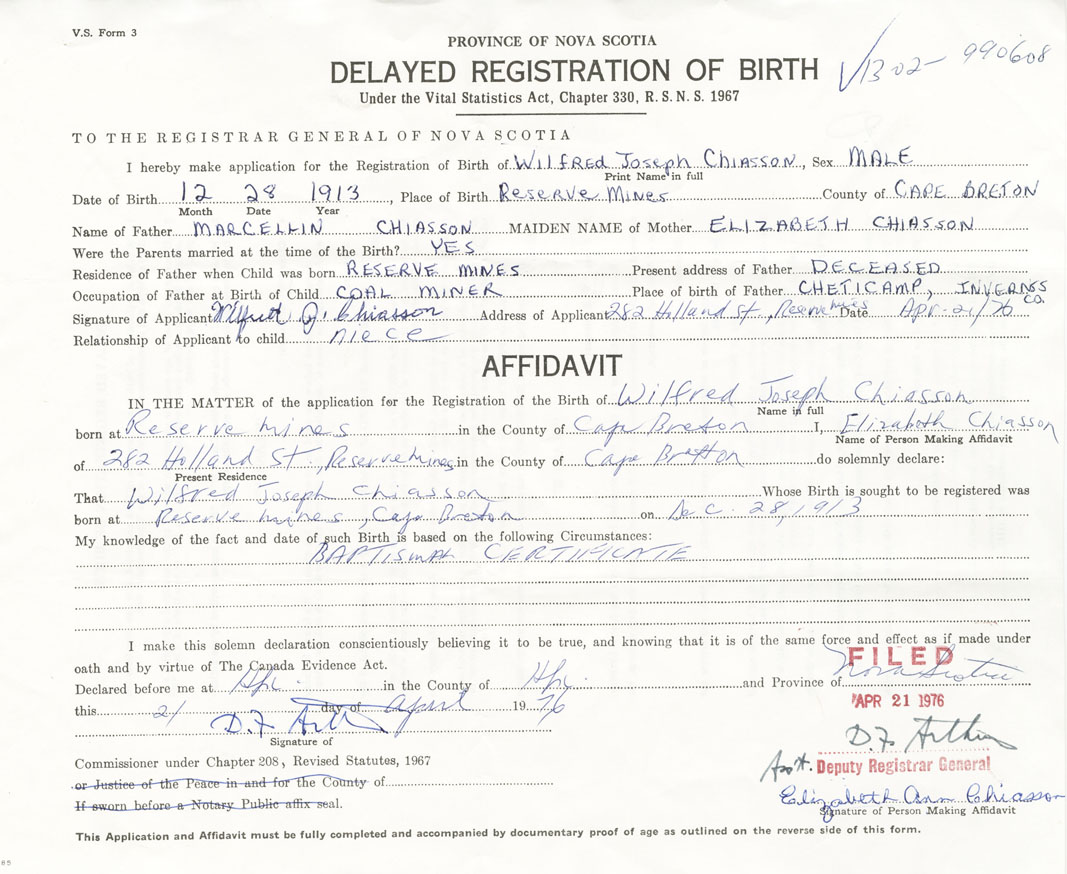 V.S. Form 3
V1302- 990608
PROVINCE OF NOVA SCOTIA
DELAYED REGISTRATION OF BIRTH
Under the Vital Statistics Act, Chapter 330, R. S. N. S. 1967
TO THE REGISTRAR GENERAL OF NOVA SCOTIA
I hereby make application for the Registration of Birth of Wilfred Joseph Chiasson, Sex MALE
Print Name in full
Date of Birth 12 28 1913, Place of Birth Reserve Mines County of CAPE BRETON
Month Date Year
Name of Father MARCELLIN CHIASSON MAIDEN NAME of Mother ELIZABETH CHIASSON
Were the Parents married at the time of the Birth? YES
Residence of Father when Child was born RESERVE MINES Present address of Father DECEASED
Occupation of Father at Birth of Child COAL MINER Place of birth of Father CHETICAMP, INVERNSS CO.
Signature of Applicant Wilfred J. Chiasson Address of Applicant 282 Holland St., Reserve Mines Date Apr-21/76
Relationship of Applicant to child niece
AFFIDAVIT
IN THE MATTER of the application for the Registration of the Birth of Wilfred Joseph Chiasson
Name in full
born at Reserve Mines in the County of Cape Breton I, Elizabeth Chiasson
Name of Person Making Affidavit
of 282 Holland St, Reserve Mines in the County of Cape Bretton do solemnly declare:
Present Residence
That Wilfred Joseph Chiasson Whose Birth is sought to be registered was
born at Reserve Mines, Cape Breton on Dec. 28, 1913
My knowledge of the fact and date of such Birth is based on the following Circumstances:
BAPTISMAL CERTIFICATE
I make this solemn declaration conscientiously believing it to be true, and knowing that it is of the same force and effect as if made under
oath and by virtue of The Canada Evidence Act.
FILED
Declared before me at Hfx. in the County of Hfx. and Province of Nova Scotia
this 21 day of April 1976
APR 21 1976
D.F.
Signature of
D.F.
Commissioner under Chapter 208, Revised Statutes, 1967
Asst. Deputy Registrar General
or Justice of the Peace in and for the County of
Elizabeth Ann Chiasson
If sworn before a Notary Public affix seal.
Signature of Person Making Affidavit
This Application and Affidavit must be fully completed and accompanied by documentary proof of age as outlined on the reverse side of this form.